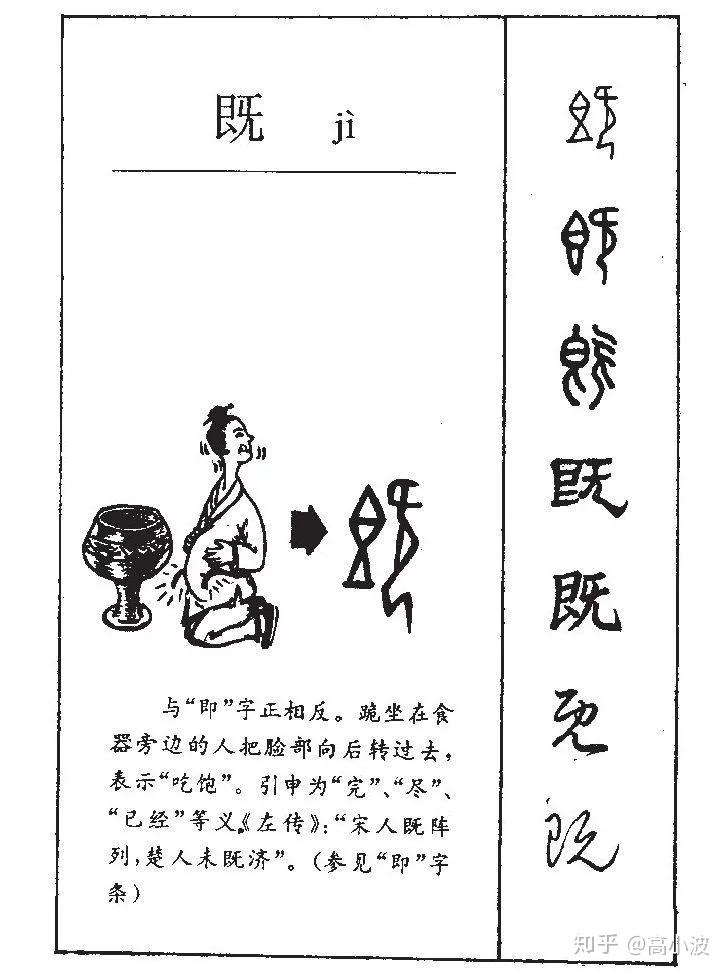 既 jì
与“即”字正相反。跪坐在食
器旁边的人把脸部向后转过去，
表示“吃饱”。引申为“完”、“尽”、
“已经”等义。《左传》：“宋人既阵
列，楚人未既济”。（参见“即”字
条）
既
既
既
既
既
既
既
知乎 @高小波